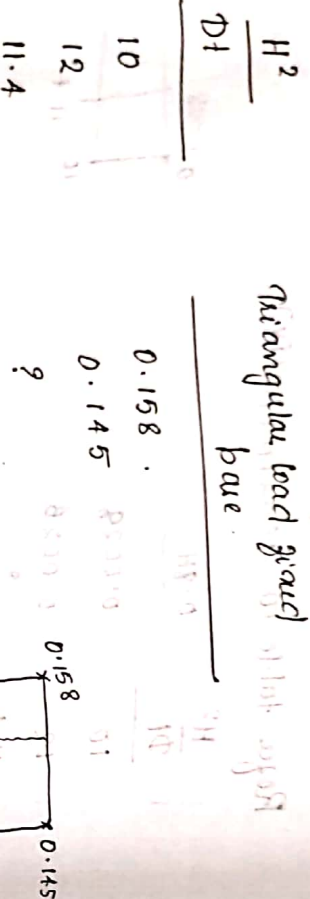 H²
Dt
Triangular load fixed
base.
10 0.158.
12 0.145
11.4 ?
0.158
0.145